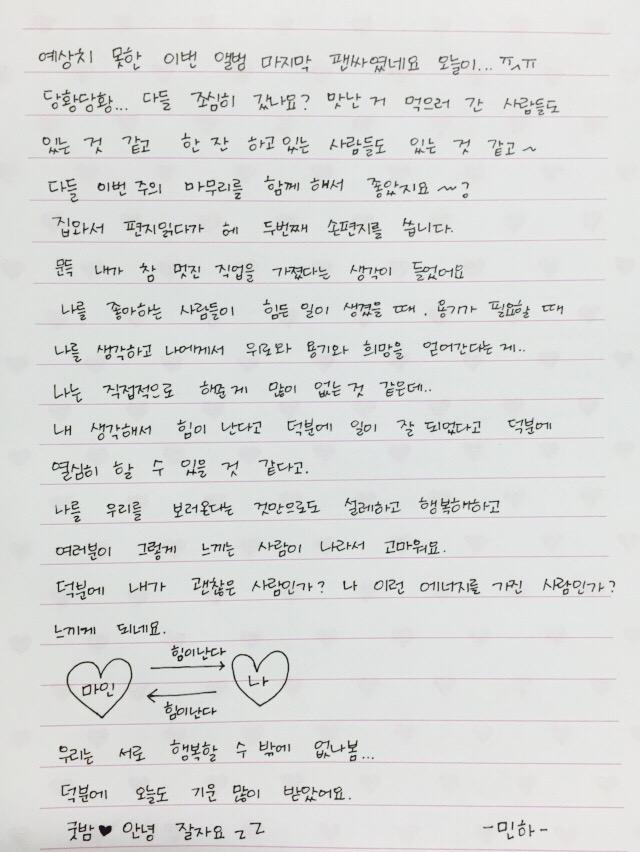 예상치 못한 이번 앨범 마지막 팬싸였네요 오늘이... ㅠㅅㅠ
당황당황... 다들 조심히 갔나요? 맛난 거 먹으러 간 사람들도
있는 것 같고 한 잔 하고 있는 사람들도 있는 것 같고~
다들 이번 주의 마무리를 함께 해서 좋았지요~?
집와서 편지읽다가 헤 두번째 손편지를 씁니다.
문득 내가 참 멋진 직업을 가졌다는 생각이 들었어요
나를 좋아하는 사람들이 힘든 일이 생겼을 때, 용기가 필요할 때
나를 생각하고 나에게서 위로와 용기와 희망을 얻어간다는 게..
나는 직접적으로 해준 게 많이 없는 것 같은데..
내 생각해서 힘이 난다고 덕분에 일이 잘 되었다고 덕분에
열심히 할 수 있을 것 같다고.
나를 우리를 보러온다는 것만으로도 설레하고 행복해하고
여러분이 그렇게 느끼는 사람이 나라서 고마워요.
덕분에 내가 괜찮은 사람인가? 나 이런 에너지를 가진 사람인가?
느끼게 되네요.
힘이난다
마인 나
힘이난다
우리는 서로 행복할 수 밖에 없나봄...
덕분에 오늘도 기운 많이 받았어요.
굿밤 ♥ 안녕 잘자요 zz
-민하-